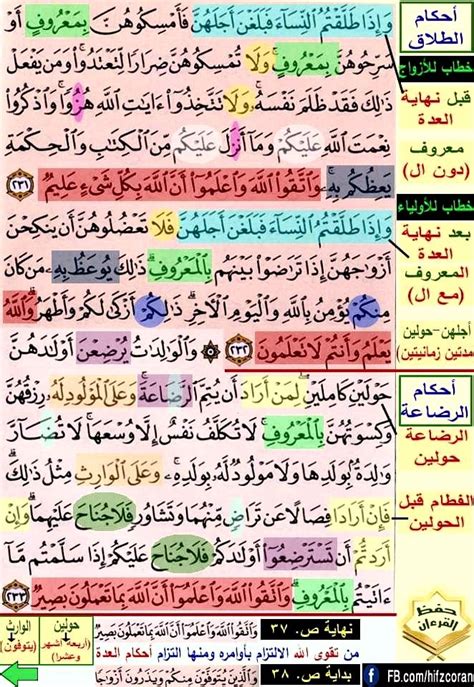 وَإِذَا طَلَّقْتُمُ النِّسَآءَ فَبَلَغْنَ أَجَلَهُنَّ فَأَمْسِكُوهُنَّ بِمَعْرُوفٍ أَوْ
سَرِّحُوهُنَّ بِمَعْرُوفٍ وَلَا تُمْسِكُوهُنَّ ضِرَارًا لِّتَعْتَدُوا۟ وَمَن يَفْعَلْ
ذَٰلِكَ فَقَدْ ظَلَمَ نَفْسَهُۥ وَلَا تَتَّخِذُوٓا۟ ءَايَٰتِ اللَّهِ هُزُوًا وَاذْكُرُوا۟
نِعْمَتَ اللَّهِ عَلَيْكُمْ وَمَآ أَنزَلَ عَلَيْكُم مِّنَ الْكِتَٰبِ وَالْحِكْمَةِ
يَعِظُكُم بِهِۦ وَاتَّقُوا۟ اللَّهَ وَاعْلَمُوٓا۟ أَنَّ اللَّهَ بِكُلِّ شَىْءٍ عَلِيمٌ ٢٣١
وَإِذَا طَلَّقْتُمُ النِّسَآءَ فَبَلَغْنَ أَجَلَهُنَّ فَلَا تَعْضُلُوهُنَّ أَن يَنكِحْنَ
أَزْوَٰجَهُنَّ إِذَا تَرَٰضَوْا۟ بَيْنَهُم بِالْمَعْرُوفِ ذَٰلِكَ يُوعَظُ بِهِۦ مَن كَانَ
مِنكُمْ يُؤْمِنُ بِاللَّهِ وَالْيَوْمِ الْآخِرِ ذَٰلِكُمْ أَزْكَىٰ لَكُمْ وَأَطْهَرُ وَاللَّهُ
يَعْلَمُ وَأَنتُمْ لَا تَعْلَمُونَ ٢٣٢ ۞ وَالْوَٰلِدَٰتُ يُرْضِعْنَ أَوْلَٰدَهُنَّ
حَوْلَيْنِ كَامِلَيْنِ لِمَنْ أَرَادَ أَن يُتِمَّ الرَّضَاعَةَ وَعَلَى الْمَوْلُودِ لَهُۥ رِزْقُهُنَّ
وَكِسْوَتُهُنَّ بِالْمَعْرُوفِ لَا تُكَلَّفُ نَفْسٌ إِلَّا وُسْعَهَا لَا تُضَآرَّ
وَٰلِدَةٌ بِوَلَدِهَا وَلَا مَوْلُودٌ لَّهُۥ بِوَلَدِهِۦ وَعَلَى الْوَارِثِ مِثْلُ ذَٰلِكَ
فَإِنْ أَرَادَا فِصَالًا عَن تَرَاضٍ مِّنْهُمَا وَتَشَاوُرٍ فَلَا جُنَاحَ عَلَيْهِمَا وَإِنْ
أَرَدتُّمْ أَن تَسْتَرْضِعُوٓا۟ أَوْلَٰدَكُمْ فَلَا جُنَاحَ عَلَيْكُمْ إِذَا سَلَّمْتُم مَّآ
ءَاتَيْتُم بِالْمَعْرُوفِ وَاتَّقُوا۟ اللَّهَ وَاعْلَمُوٓا۟ أَنَّ اللَّهَ بِمَا تَعْمَلُونَ بَصِيرٌ ٢٣٣
أحكام
الطلاق
خطاب للأزواج
قبل نهاية
العدة
معروف
(دون ال)
خطاب للأولياء
بعد نهاية
العدة
المعروف
(مع ال)
أجلهن-حولين
مدتين زمانيتين)
أحكام
الرضاعة
الرضاعة
حولين
الفطام قبل
الحولين
حفظ
القرءان
نهاية ص. ٣٧ وَاتَّقُوا۟ اللَّهَ وَاعْلَمُوٓا۟ أَنَّ اللَّهَ بِمَا تَعْمَلُونَ بَصِيرٌ
من تقوى الله الالتزام بأوامره ومنها التزام أحكام العدة
بداية ص. ٣٨ وَالَّذِينَ يُتَوَفَّوْنَ مِنكُمْ وَيَذَرُونَ أَزْوَٰجًا
حولين
(أربعة أشهر
وعشرا)
الوارث
(يتوفون)
FB.com/hifzcoran